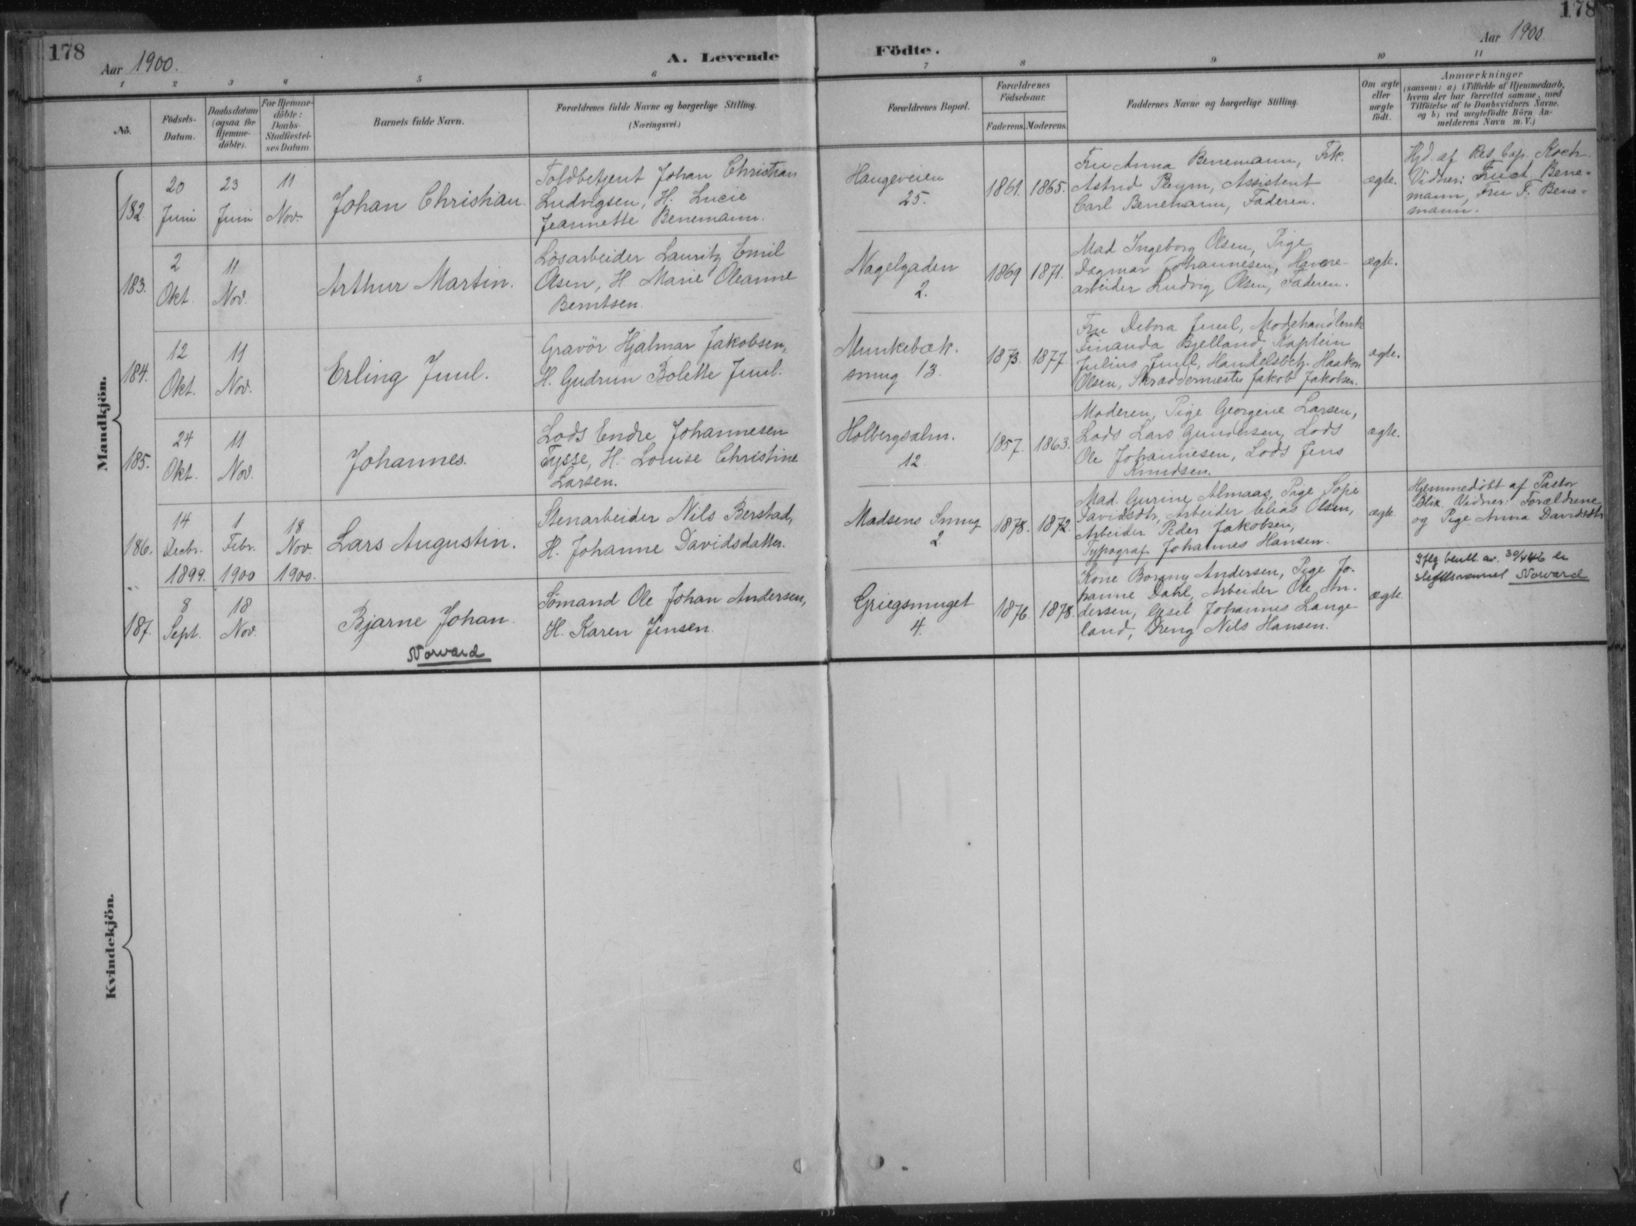 178
Aar 1900.
A. Levende
Födte.
Aar 1900.
178
1 2 3 4 5 6 7 8 9 10 11
No.
Födsels-
Datum.
Daabsdatum
(ogsaa for
Hjemme-
döbte).
For Hjemme-
döbte:
Daabs-
Stadfæstel-
ses Datum
Barnets fulde Navn.
Forældrenes fulde Navne og borgerlige Stilling.
(Næringsvei.)
Forældrenes Bopæl.
Forældrenes
Födselsaar.
Faderens. Moderens.
Faddernes Navne og borgerlig Stilling.
Om ægte
eller
uægte
födt.
Anmærkninger
(saasom: a) i Tilfælde af Hjemmedaab,
hvem der har forrettet samme, med
Tilföielse af to Daabsvidners Navne,
og b) ved uægtefödte Börn An-
melderens Navn m. V.)
Mandkjön.
182.
20
Juni
23
Juni
11
Nov.
Johan Christian.
Toldbetjent Johan Christian
Ludvigsen, H. Lucie
Jeannette Benemann.
Haugeveien
25.
1861. 1865.
Fru Anna Benemann, Frk.
Astrid Reym, Assistent
Carl Benemann, Faderen.
ægte.
Hjd. af Res. Cap. Koch
Vidner: Fru A. Bene-
mann, Fru F. Bene-
mann.
183.
2
Okt.
11
Nov.
Arthur Martin.
Lösarbeider Lauritz Emil
Olsen, H. Marie Oleanne
Berntsen.
Nagelgaden
2.
1869 1871.
Mad. Ingeborg Olsen, Pige
Dagmar Johannesen, Havne-
arbeider Ludvig Olsen, Faderen.
ægte.
184.
12
Okt.
11
Nov.
Erling Juul.
Gravör Hjalmar Jakobsen,
H. Gudrun Bolette Juul.
Munkebæk.
smug 13.
1873. 1877.
Fru Debora Juul, Modehandlersk
Finanda Bjelland, Kaptein
Julius Juul, Handelsbetj. Haakon
Olsen, Skræddermester Jakob Jakobsen.
ægte.
185.
24
Okt.
11
Nov.
Johannes.
Lods Endre Johannesen
Tysse, H. Louise Christine
Larsen.
Holbergsalm.
12
1857. 1863.
Moderen, Pige Georgine Larsen,
Lods Lars Gundersen, Lods
Ole Johannesen, Lods Jens
Knudsen.
ægte.
186.
14
Decbr.
1899.
1
Febr.
1900
18
Nov.
1900.
Lars Augustin.
Stenarbeider Nils Berstad,
H. Johanne Davidsdatter.
Madsens Smug
2.
1878. 1872
Mad. Gurine Almaas, Pige Sofie
Davidsdtr, Arbeider Olsen,
Arbeider Peder Jakobsen,
Typograf Johannes Hansen.
ægte.
Hjemmedöbt af Pastor
Blix. Vidner: Forældrene
og Pige Anna Davidsdtr.
187.
8
Sept.
18
Nov.
Bjarne Johan.
Norvard
Sömand Ole Johan Andersen,
H. Karen Jensen.
Griegsmuget
4.
1876. 1878.
Kone Borgny Andersen, Pige Jo-
hanne Dahl, Arbeider Ole An-
dersen, Gisel Johannes Lange-
land, Dreng Nils Hansen.
ægte.
Iflg. bevill. av er
slektsnavnet Norvard
Kvindekjön.